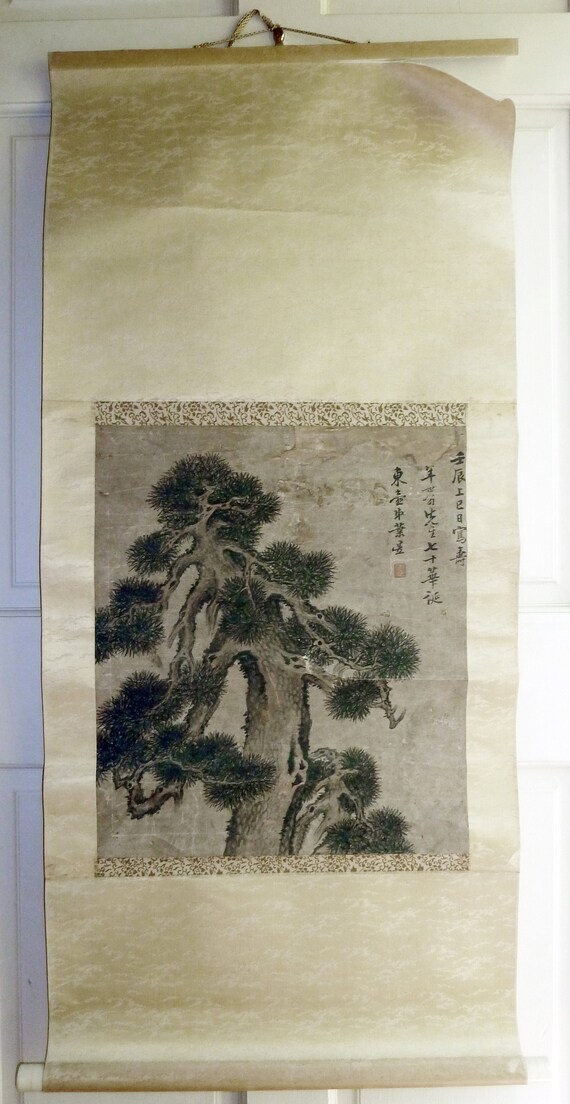 壬辰上巳日寫壽
年世伯先生七十華誕
東壺弟葉豊